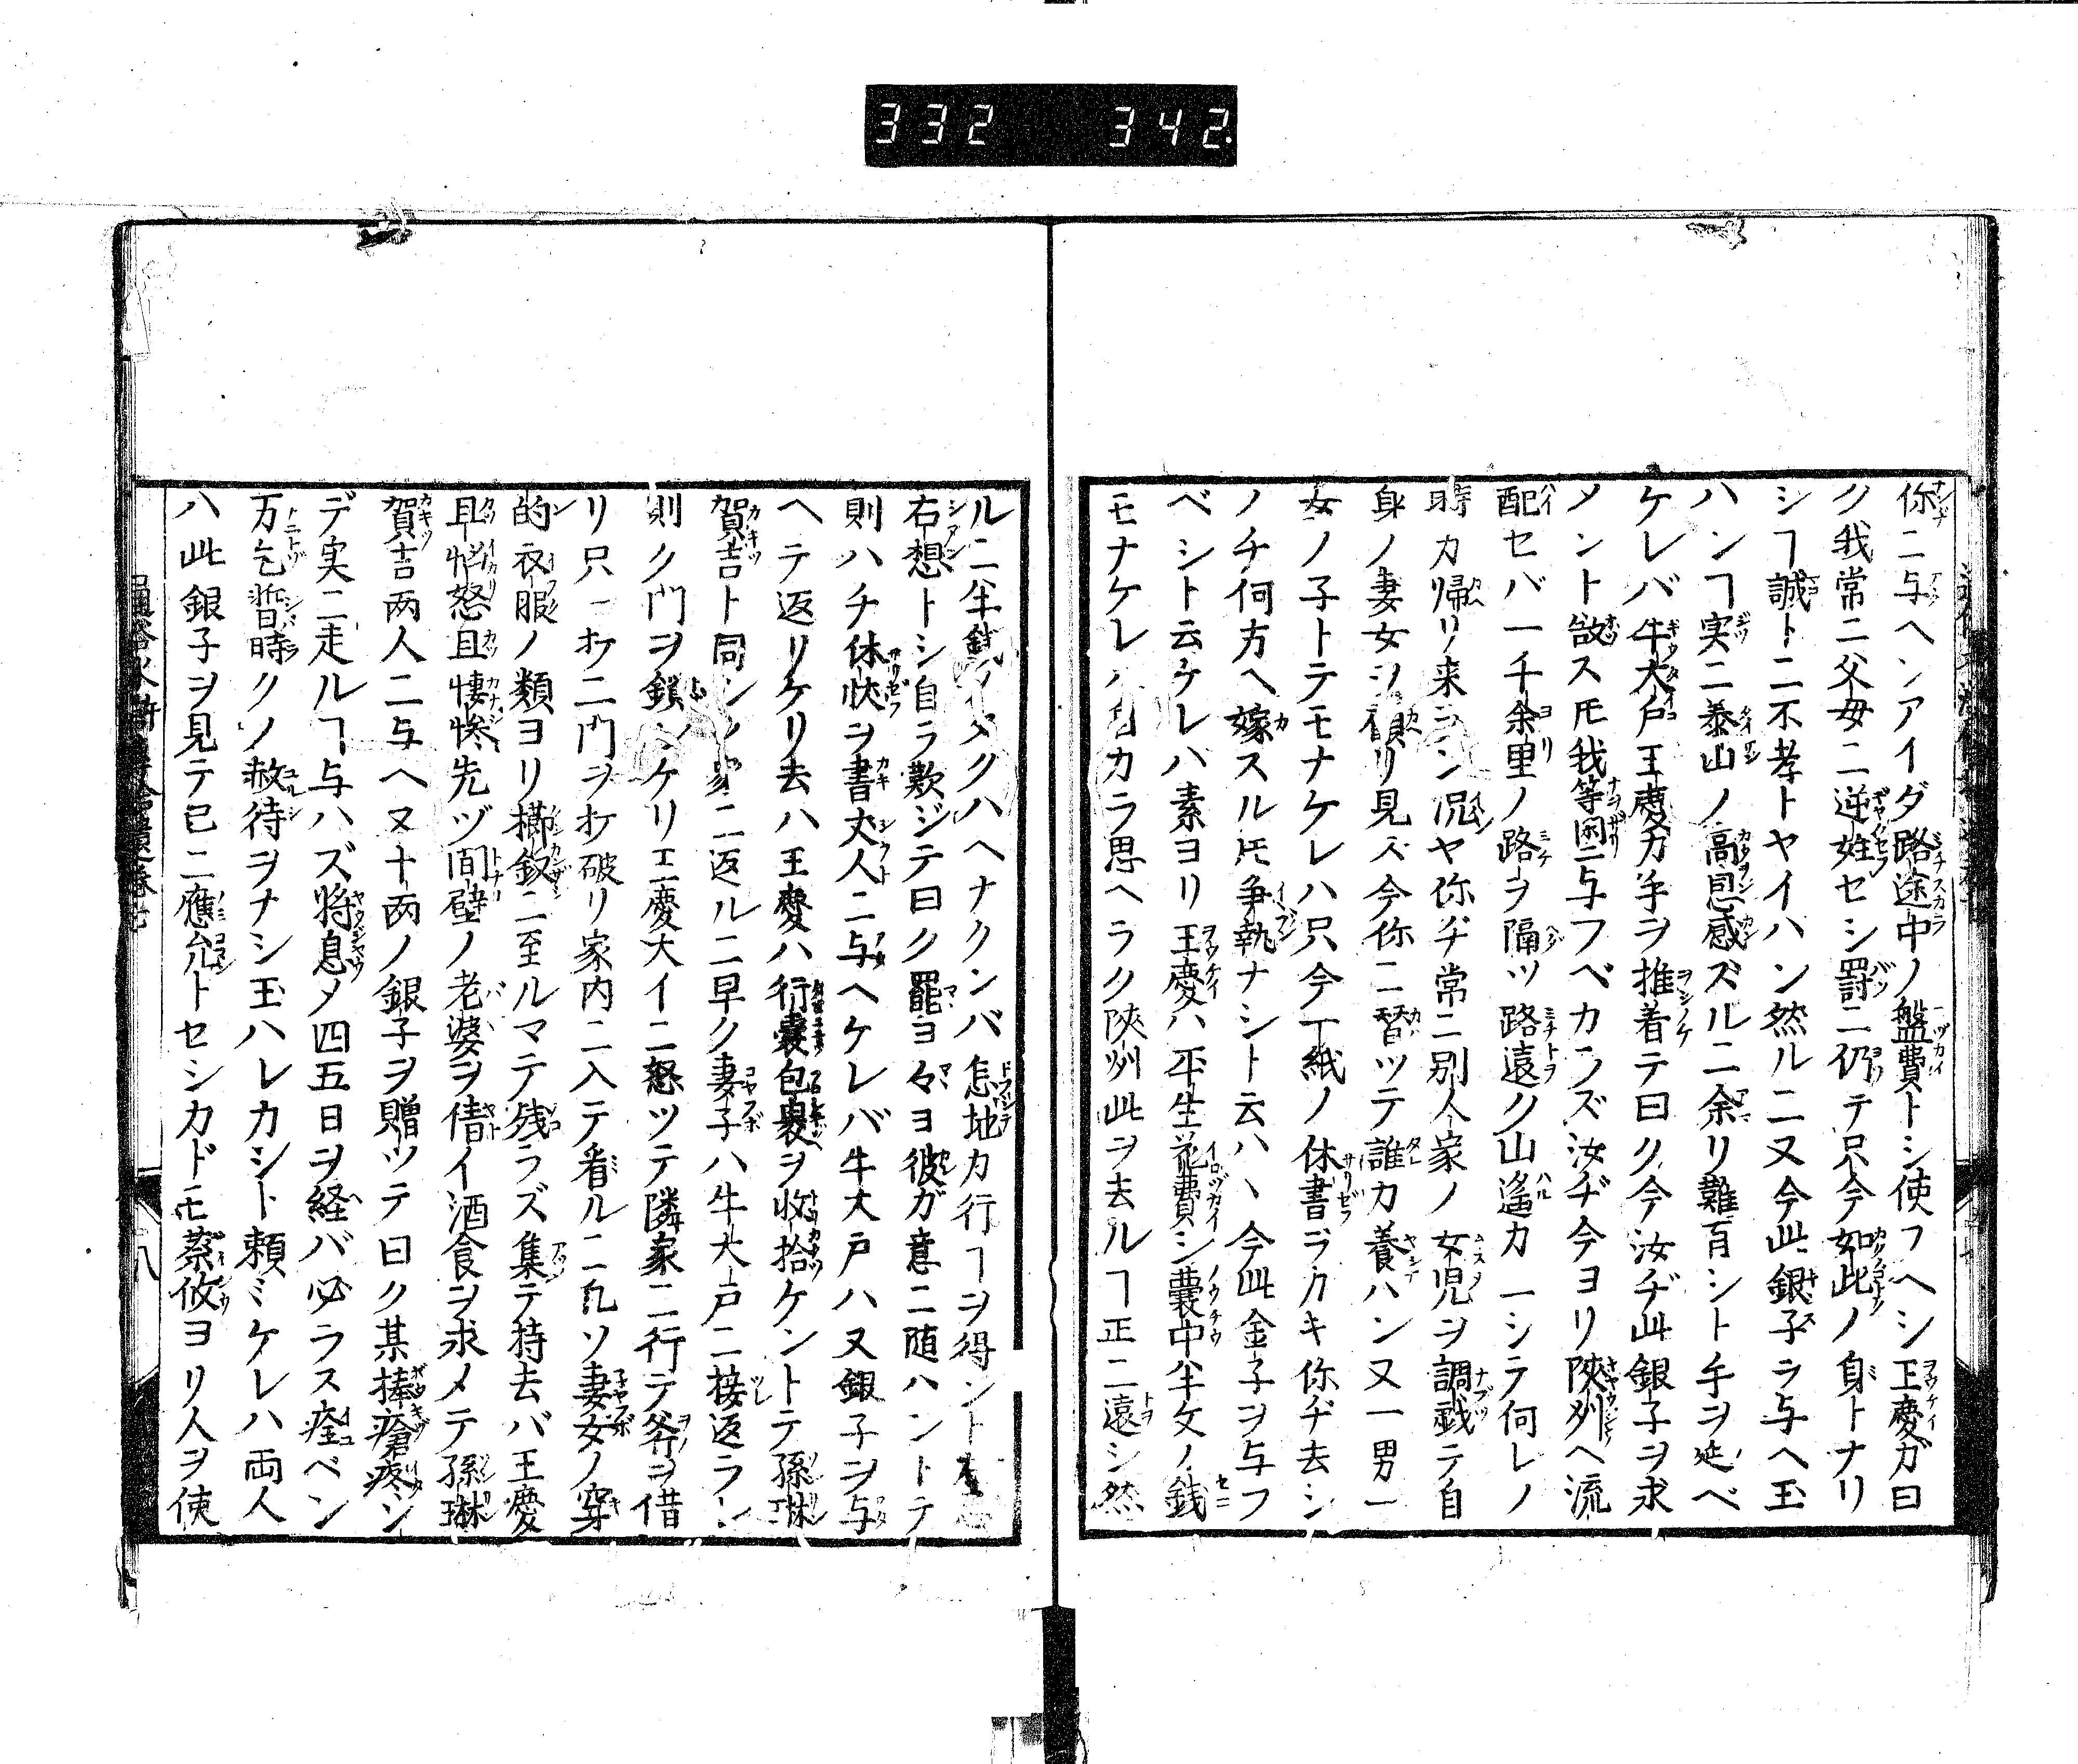 332 342
你ニ与ヘンアイダ路途中ノ盤費トシ使フヘシ王慶ガ曰
ク我常ニ父母ニ逆姓セシ罸ニ仍テ只今如此ノ身トナリ
シヿ誠トニ不孝トヤイハン然ルニ又今此銀子ヲ与ヘ玉
ハンヿ実ニ泰山ノ高恩感ズルニ余リ難有シト手ヲ延ベ
ケレバ牛大戸王慶カ手ヲ推着テ曰ク今汝ヂ此銀子ヲ求
メント欲スㇳモ我等閑ニ与フベカラズ汝ヂ今ヨリ陝州ヘ流
配セバ一千余里ノ路ヲ隔ツ路遠ク山遙カ一シラ何レノ
時カ帰リ来ラン况ヤ你ヂ常ニ別人家ノ女児ヲ調戯テ自
身ノ妻女ヲ顧リ見ズ今你ニ替ツテ誰カ養ハン又一男一
女ノ子トテモナケレハ只今一紙ノ休書ヲカキ你ヂ去シ
ノチ何方ヘ嫁スルㇳモ争執ナシト云ハヽ今此金子ヲ与フ
ベシト云ケレハ素ヨリ王慶ハ平生花費シ囊中半文ノ銭
モナケレハ自カラ思ヘラク陝州此ヲ去ルヿ正ニ遠シ然
ルニ半銭ノタクハヘナクンバ怎地カ行ヿヲ得ント
右想トシ自ラ歎ジテ曰ク罷ヨ々ヨ彼ガ意ニ随ハントテ
則ハチ休快ヲ書丈人ニ与ヘケレバ牛大戸ハ又銀子ヲ与
ヘテ返リケリ去ハ王慶ハ行囊包裹ヲ收拾ケントテ孫琳
賀吉ト同シク家ニ返ルニ早ク妻子ハ牛大戸ニ接返ラレ
則ク門ヲ鎖シケリ王慶大イニ怒ツテ隣家ニ行テ斧ヲ借
リ只一打ニ門ヲ打破リ家内ニ入テ看ルニ凡ソ妻女ノ穿
的衣服ノ類ヨリ櫛釵ニ至ルマテ残ラズ集テ持去バ王慶
且怒且悽惨先ヅ間壁ノ老婆ヲ倩イ酒食ヲ求メテ孫琳
賀吉両人ニ与ヘ又十両ノ銀子ヲ贈ツテ曰ク某捧瘡疼ン
デ実ニ走ルヿ与ハズ将息メ四五日ヲ経バ必ラス痊ベン
万乞暫時クノ赦待ヲナシ玉ハレカシト頼ミケレハ両人
ハ此銀子ヲ見テ已ニ應允トセシカドモ蔡攸ヨリ人ヲ使
八